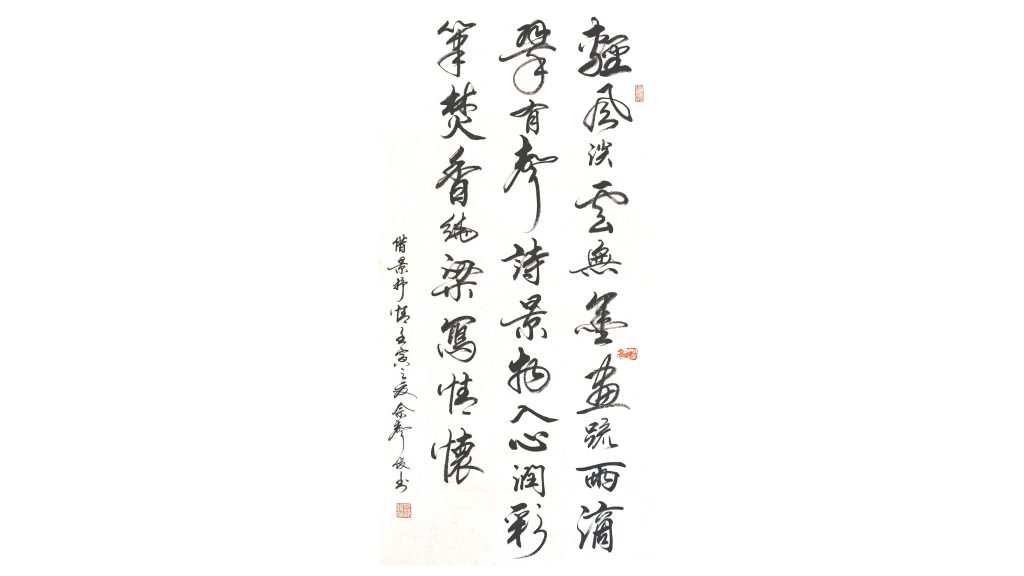 輕風淡雲無墨畫疏雨滴
翠有聲詩景物入心潤彩
筆焚香繞梁寫情懷
借景抒情壬寅之夏余書